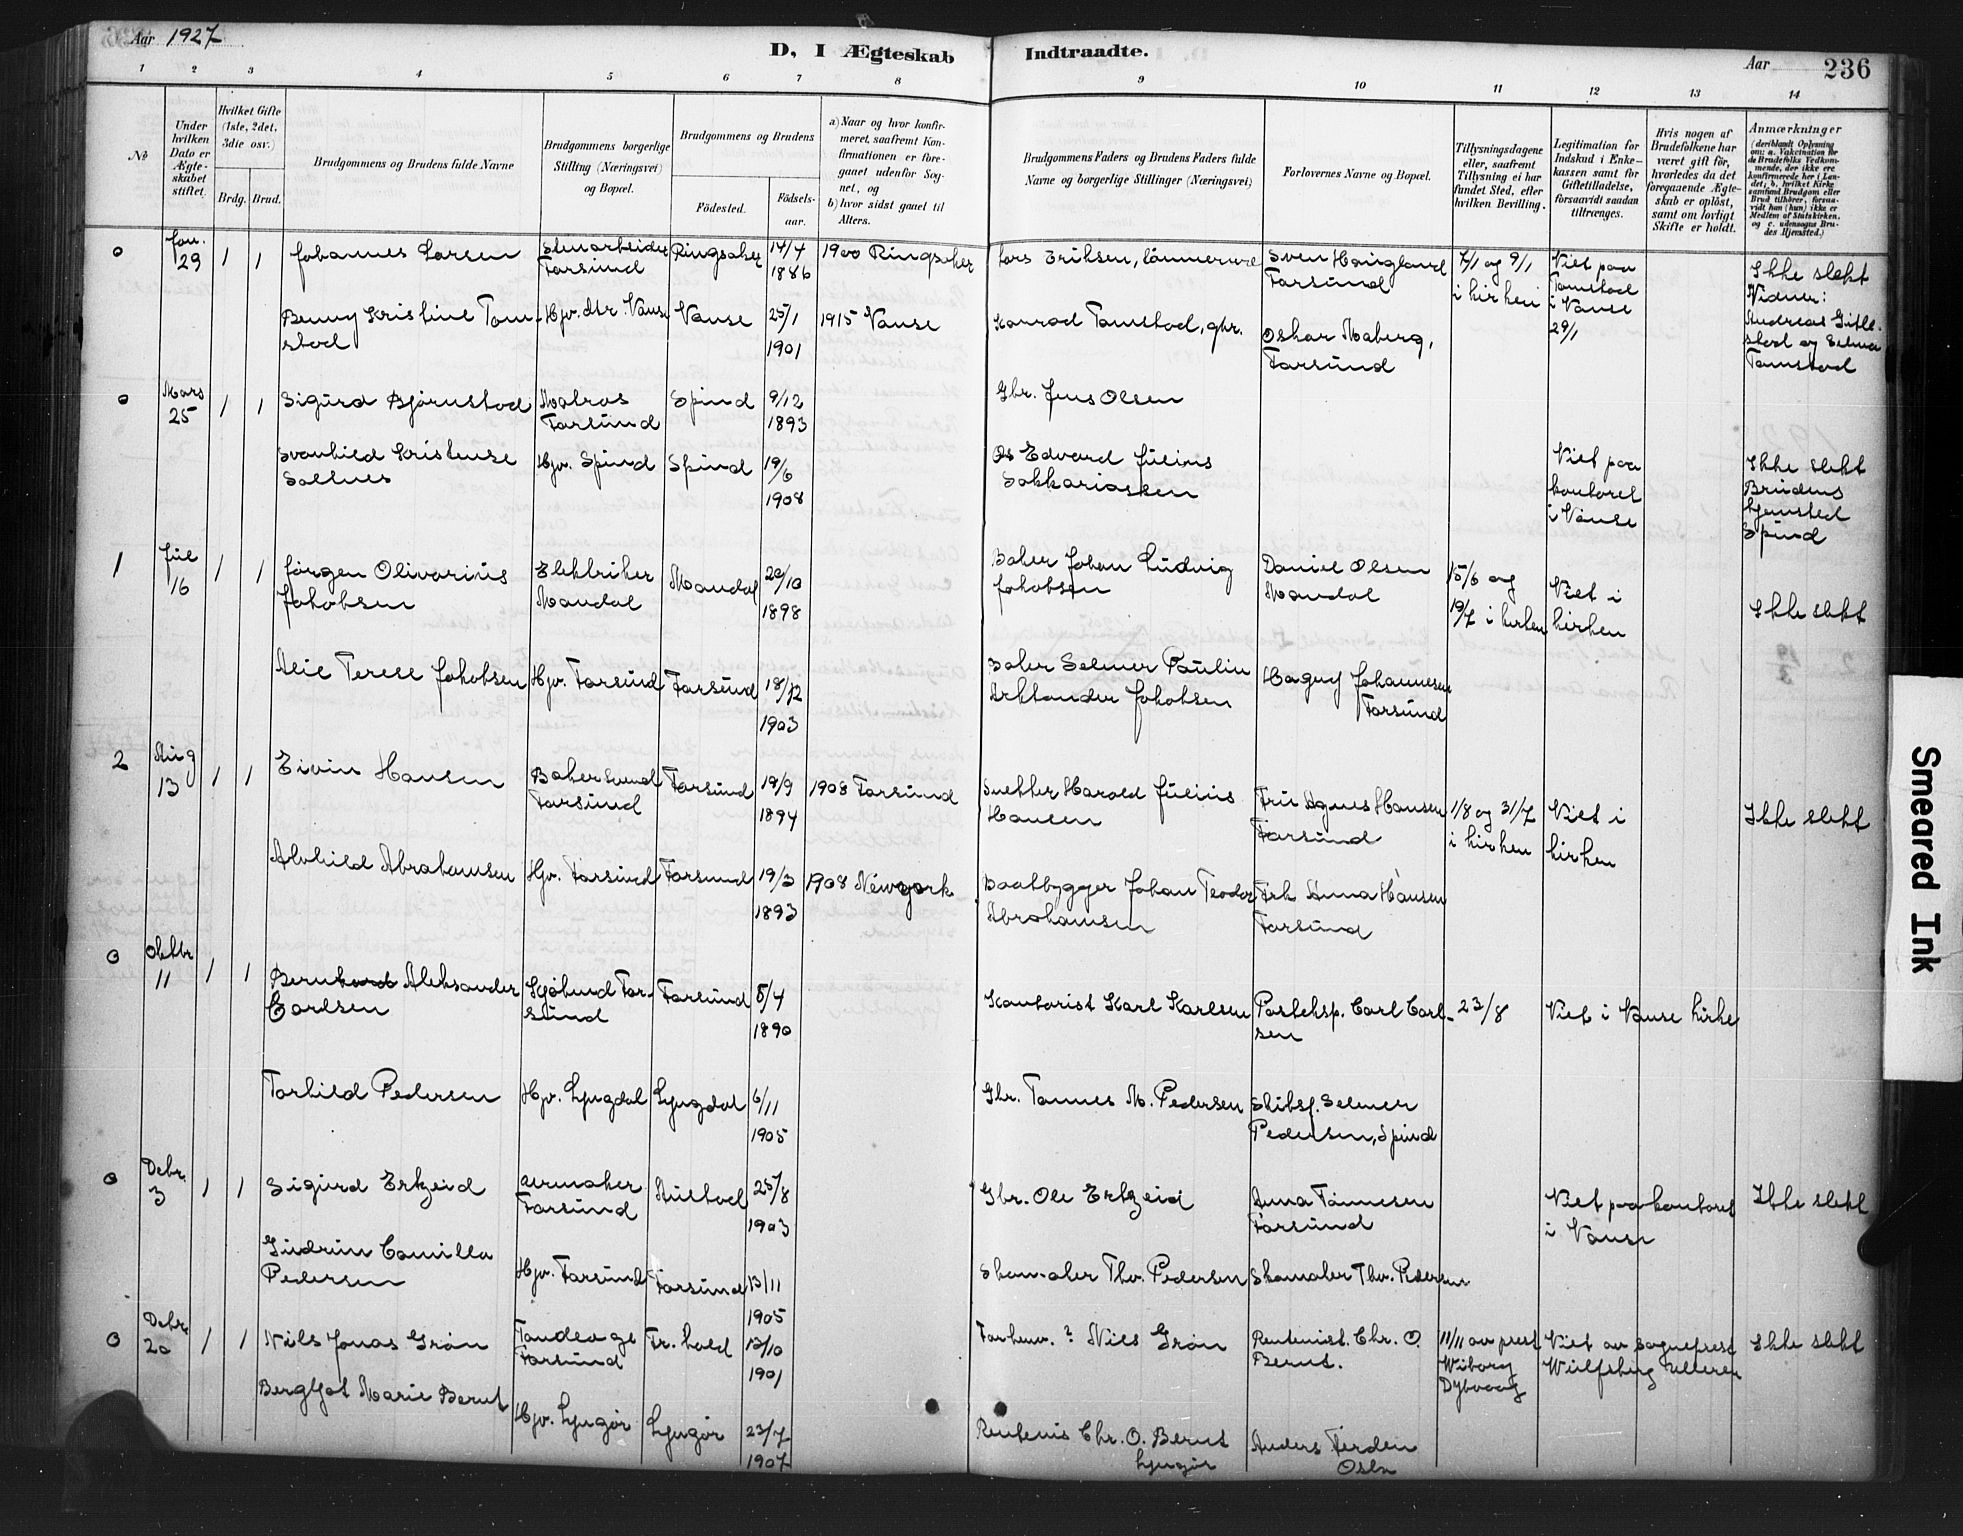 Aar 1927
D, I Ægteskab Indtraadte.
Aar 236
1 2 3 4 5 6 7 8 9 10 11 12 13 14
No
Under hvilken Dato er Ægteskabet stiftet.
Hvilket Gifte (1ste, 2det, 3die osv.)
Brdg. Brud.
Brudgommens og Brudens fulde Navne
Brudgommens borgerlige Stilling (Næringsvei) og Bopæl.
Brudgommens og Brudens
Födested. Födselsaar.
a) Naar og hvor konfirmeret, saafremt Konfirmationen er foregaaet udenfor Sognet, og
b) hvor sidst gaaet til Alters.
Brudgommens Faders og Brudens Faders fulde Navne og borgerlige Stillinger (Næringsvei)
Forlovernes Navne og Bopæl.
Tillysningsdagene eller, saafremt Tillysning ei har fundet Sted, efter hvilken Bevilling.
Legitimation for Indskud i Enkekassen samt for Giftetilladelse, forsaavidt saadan tiltrænges.
Hvis nogen af Brudefolkene har været gift för, hvorledes da det foregaaende Ægteskab er oplöst, samt om lovligt Skifte er holdt.
Anmærkninger
(deriblandt Oplysning om: a. Vakcination for de Brudefolks Vedkommende, der ikke ere konfirmerede her i Landet; b. hvilket Kirkesamfund Brudgom eller Brud tilhörer, forsaavidt han (hun) ikke er Medlem af Statskirken, og c. udensogns Brudes Hjemsted.)
0 Jan. 29 1 1 Johannes Larsen Stenarbeider Farsund Ringsaker 14/4 1886 1900 Ringsaker Lars Eriksen, Sven Haugland Farsund 7/1 og 9/1 i kirken Viet paa Tomstad i Vanse 29/1 Ikke slekt Vidner: Andreas Gitlestad og Selma Tomstad
Benny Kristine Tomstad Hjv. dtr. Vanse Vanse 25/1 1901 1915 Vanse Konrad Tomstad, gbr. Oskar Moberg, Farsund
0 Mars 25 1 1 Sigurd Bjørnstad Matros Farsund Spind 9/12 1893 Gbr. Jens Olsen
Svanhild Kristense Salnes Hjv. Spind Spind 19/6 1908 Edvard Julius Sakkariassen Viet paa kontoret i Vanse Ikke slekt Brudens hjemsted Spind
1 Jul 16 1 1 Jørgen Olivarius Jakobsen Elektriker Mandal Mandal 20/10 1898 Baker Johan Ludvig Jakobsen Daniel Olsen Mandal 15/6 og 19/7 i kirken Viet i kirken Ikke slekt
Alie Terese Jakobsen Hjv. Farsund Farsund 18/12 1903 Baker Selmer Paulin Arklander Jakobsen Hagny Johannesen Farsund
2 Aug 13 1 1 Eivin Hansen Bakersvend Farsund Farsund 19/9 1894 1908 Farsund Snekker Harald Julius Hansen Fru Agnes Hansen Farsund 1/8 og 31/7 i kirken Viet i kirken Ikke slekt
Alvhild Abrahamsen Hjv. Farsund Farsund 19/3 1893 1908 Newyork Baatbygger Johan Teodor Abrahamsen Frk Anna Hansen Farsund
0 Oktbr 11 1 1 Bernhard Aleksander Carlsen Sjømand Farsund Farsund 5/4 1890 Kontorist Karl Karlsen Posteksp. Carl Carlsen 23/8 Viet i Vanse kirke
Torhild Pedersen Hjv. Lyngdal Lyngdal 6/11 1905 Gbr. Tønnes M. Pedersen Skibsf. Selmer Pedersen, Spind
0 Debr. 3 1 1 Sigurd Erkzeid urmaker Farsund Austad 25/8 1903 Gbr. Ole Erkzeid Anna Tønnesen Farsund Viet paa kontoret i Vanse Ikke slekt
Gudrun Camilla Pedersen Hjv. Farsund Farsund 13/11 1905 Skomaker Thv. Pedersen Skomaker Thv. Pedersen
0 Debr. 20 1 1 Nils Jonas Grøn Tandlæge Farsund Fr. hald 13/10 1901 Forhenv. ? Niels Grøn Rentenist. Chr. O. Bernt. 11/11 av prest Wiborg Dybvaag Viet av sogneprest Wulfsberg Ulleren Ikke slekt
Bergljot Marie Bernt Hjv. Lyngør Lyngør 23/7 1907 Rentenis Chr. O. Bernt Lyngør Anders Ferden Oslo
Smeared Ink